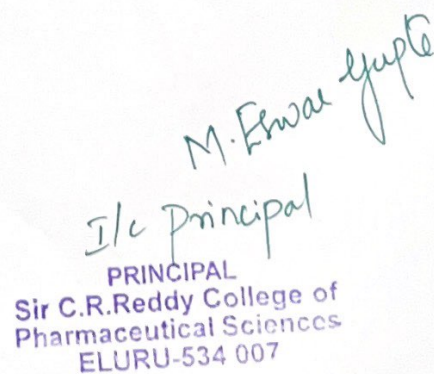 M. Eswar Gupta
I/c Principal
PRINCIPAL
Sir C.R.Reddy College of
Pharmaceutical Sciences
ELURU-534 007